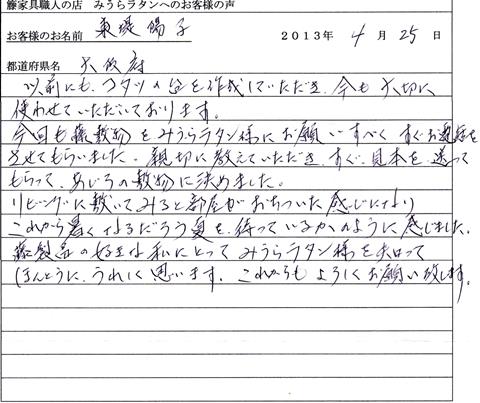 籐家具職人の店 みうらラタンへのお客様の声
お客様のお名前 東堤 陽子 2013年 4 月 25 日
都道府県名 大阪府
以前にも、コタツの台を作成していただき、今も大切に
使わせていただいております。
今回も籐敷物をみうらラタン様にお願いすべく すぐお電話を
させてもらいました。親切に教えていただき、すぐ、見本を送って
もらって、あじろの敷物に決めました。
リビングに敷いてみると部屋がおちついた感じになり
これから暑くなるだろう夏を、待っているかのように感じました。
籐製品の好きな私にとって みうらラタン様を知って
ほんとうに、うれしく思います。これからもよろしくお願い致します。